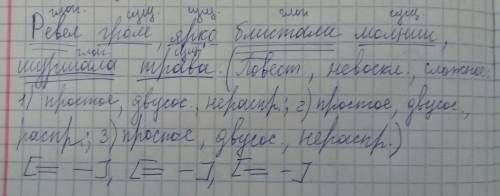 глаг. сущ. сущ. глаг. сущ.
Ревел гром, ярко блистали молнии,
глаг. сущ.
шуршала трава. (Повест., невоскл., сложное:
1) простое, двусос., нераспр.; 2) простое, двусос.,
распр.; 3) простое, двусос., нераспр.)
[= –], [= –], [= –]